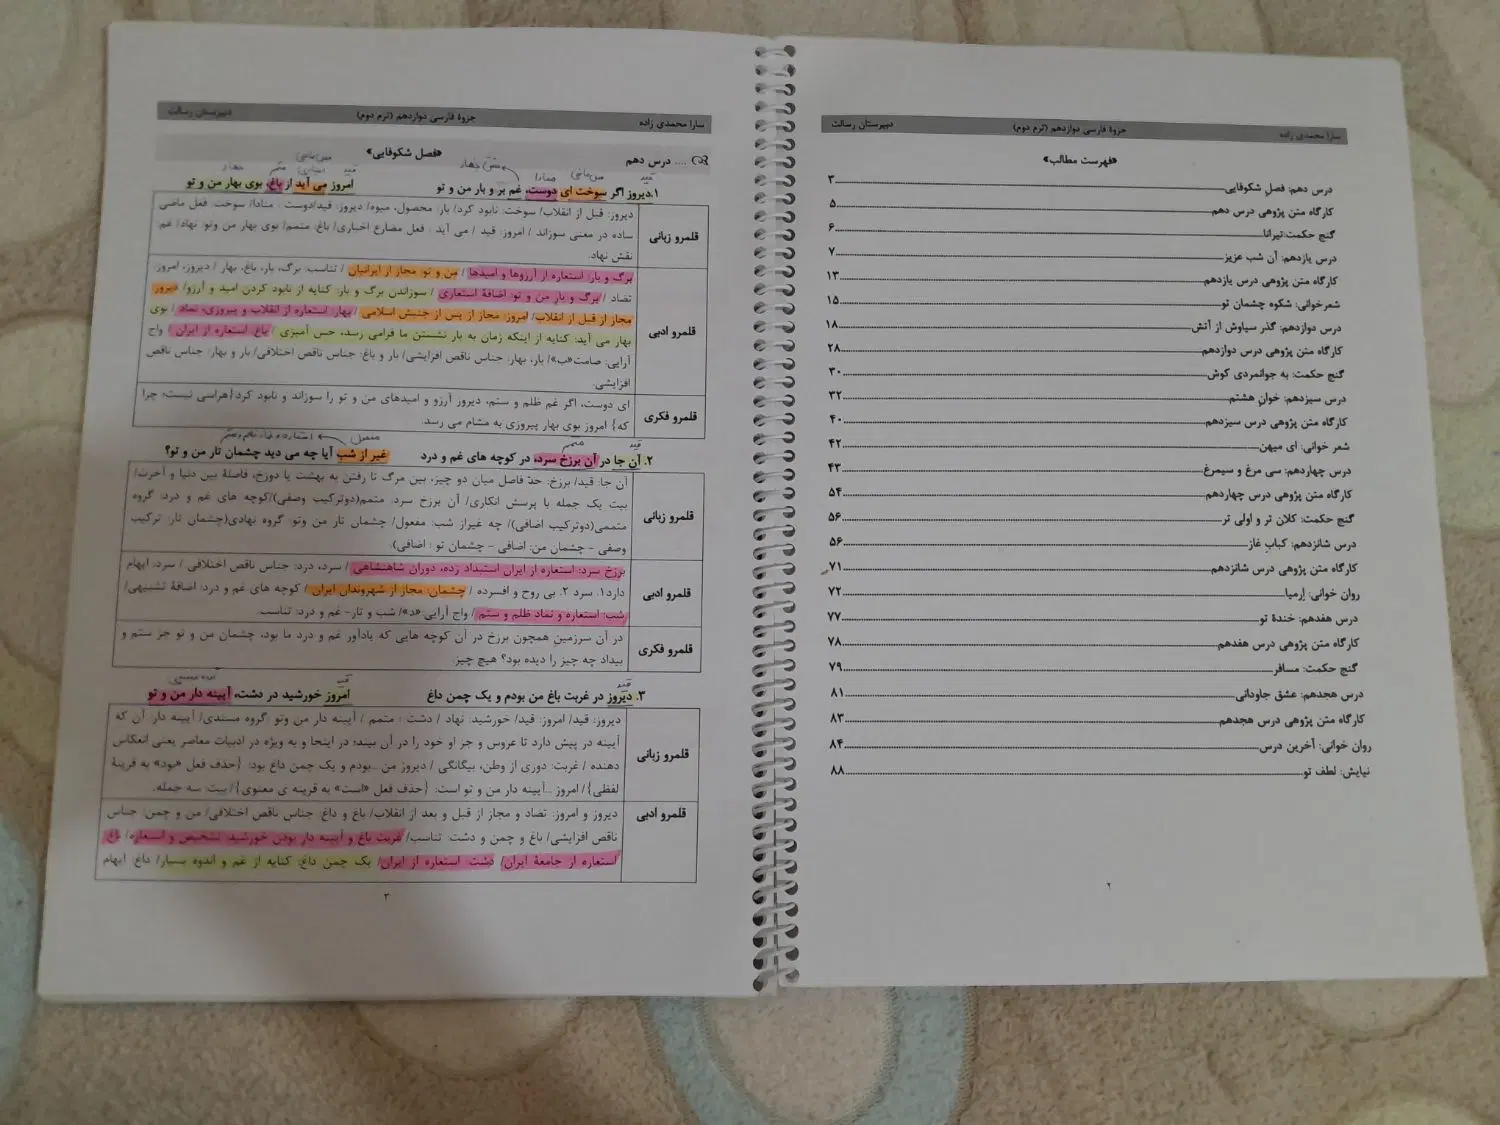 سارا محمدی زاده جزوهٔ فارسی دوازدهم (ترم دوم) دبیرستان رسالت
«فهرست مطالب»
درس دهم: فصلِ شکوفایی ۳
کارگاه متن پژوهی درس دهم ۵
گنج حکمت:تیرانا ۶
درس یازدهم: آن شب عزیز ۷
کارگاه متن پژوهی درس یازدهم ۱۳
شعرخوانی: شکوه چشمان تو ۱۵
درس دوازدهم: گذر سیاوش از آتش ۱۸
کارگاه متن پژوهی درس دوازدهم ۲۸
گنج حکمت: به جوانمردی کوش ۳۰
درس سیزدهم: خوانِ هشتم ۳۲
کارگاه متن پژوهی درس سیزدهم ۴۰
شعر خوانی: ای میهن ۴۲
درس چهاردهم: سی مرغ و سیمرغ ۴۳
کارگاه متن پژوهی درس چهاردهم ۵۴
گنج حکمت: کلان تر و اولی تر ۵۶
درس شانزدهم: کبابِ غاز ۵۶
کارگاه متن پژوهی درس شانزدهم ۷۱
روان خوانی: اِرمیا ۷۲
درس هفدهم: خندهٔ تو ۷۷
کارگاه متن پژوهی درس هفدهم ۷۸
گنج حکمت: مسافر ۷۹
درس هجدهم: عشق جاودانی ۸۱
کارگاه متن پژوهی درس هجدهم ۸۳
روان خوانی: آخرین درس ۸۴
نیایش: لطف تو ۸۸
۲
سارا محمدی زاده جزوهٔ فارسی دوازدهم (ترم دوم) دبیرستان رسالت
.... درس دهم «فصل شکوفایی»
قید ماضی منادا
قید متمم نهاد
۱.دیروز اگر سوخت ای دوست، غم بر و بار من و تو امروز می آید از باغ، بوی بهار من و تو
قلمرو زبانی
دیروز: قبل از انقلاب/ سوخت: نابود کرد/ بار: محصول، میوه/ دیروز: قید/دوست : منادا/ سوخت: فعل ماضی
ساده در معنی سوزاند / امروز: قید / می آید : فعل مضارع اخباری/ باغ: متمم/ بوی بهار من وتو: نهاد/ غم:
نقش نهاد.
قلمرو ادبی
برگ و بار: استعاره از آرزوها و امیدها / من و تو: مجاز از ایرانیان / تناسب: برگ، بار، باغ، بهار / دیروز، امروز:
تضاد / برگ و بار من و تو: اضافهٔ استعاری / سوزاندن برگ و بار: کنایه از نابود کردن امید و آرزو/ دیروز
مجاز از قبل از انقلاب/ امروز: مجاز از پس از جنبش اسلامی / بهار: استعاره از انقلاب و پیروزی، نماد / بوی
بهار می آید: کنایه از اینکه زمان به بار نشستن ما فرامی رسد، حس آمیزی / باغ استعاره از ایران / واج
آرایی: صامت«ب»/ بار، بهار: جناس ناقص افزایشی/ بار و باغ: جناس ناقص اختلافی/ بار و بهار: جناس ناقص
افزایشی.
قلمرو فکری
ای دوست، اگر غم ظلم و ستم، دیروز آرزو و امیدهای من و تو را سوزاند و نابود کرد{هراسی نیست؛ چرا
که} امروز بوی بهار پیروزی به مشام می رسد.
قید متمم مفعول
۲. آن جا در آن برزخ سرد، در کوچه های غم و درد غیر از شب آیا چه می دید چشمان تار من و تو؟
قلمرو زبانی
آن جا: قید/ برزخ: حدّ فاصل میان دو چیز، بین مرگ تا رفتن به بهشت یا دوزخ، فاصلهٔ بین دنیا و آخرت/
بیت یک جمله با پرسش انکاری/ آن برزخ سرد: متمم(دوترکیب وصفی)/کوچه های غم و درد: گروه
متممی(دوترکیب اضافی)/ چه غیراز شب: مفعول/ چشمان تار من وتو: گروه نهادی(چشمان تار: ترکیب
وصفی - چشمان من: اضافی - چشمان تو : اضافی).
قلمرو ادبی
برزخ سرد: استعاره از ایران استبداد زده، دوران شاهنشاهی / سرد، درد: جناس ناقص اختلافی / سرد: ایهام
دارد۱. سرد ۲. بی روح و افسرده / چشمان: مجاز از شهروندان ایران / کوچه های غم و درد: اضافهٔ تشبیهی/
شب: استعاره و نماد ظلم و ستم / واج آرایی:«د»/ شب و تار- غم و درد: تناسب.
قلمرو فکری
در آن سرزمین همچون برزخ در آن کوچه هایی که یادآور غم و درد ما بود، چشمان من و تو جز ستم و
بیداد چه چیز را دیده بود؟ هیچ چیز.
قید قید
۳. دیروز در غربت باغ من بودم و یک چمن داغ امروز خورشید در دشت، آیینه دار من و تو
قلمرو زبانی
دیروز: قید/ امروز: قید/ خورشید: نهاد / دشت : متمم / آیینه دار من وتو: گروه مسندی/ آیینه دار: آن که
آیینه در پیش دارد تا عروس و جز او خود را در آن بیند؛ در اینجا و به ویژه در ادبیات معاصر یعنی انعکاس
دهنده / غربت: دوری از وطن، بیگانگی / دیروز من ...بودم و یک چمن داغ بود: {حذف فعل «بود» به قرینهٔ
لفظی}/ امروز ...آیینه دار من و تو است: {حذف فعل «است» به قرینه ی معنوی}/ بیت: سه جمله.
قلمرو ادبی
دیروز و امروز: تضاد و مجاز از قبل و بعد از انقلاب/ باغ و داغ: جناس ناقص اختلافی/ من و چمن: جناس
ناقص افزایشی/ باغ و چمن و دشت: تناسب/ غربت باغ و آیینه دار بودن خورشید: تشخیص و استعاره/ باغ
استعاره از جامعهٔ ایران/ دشت: استعاره از ایران/ یک چمن داغ: کنایه از غم و اندوه بسیار/ داغ: ایهام
۳